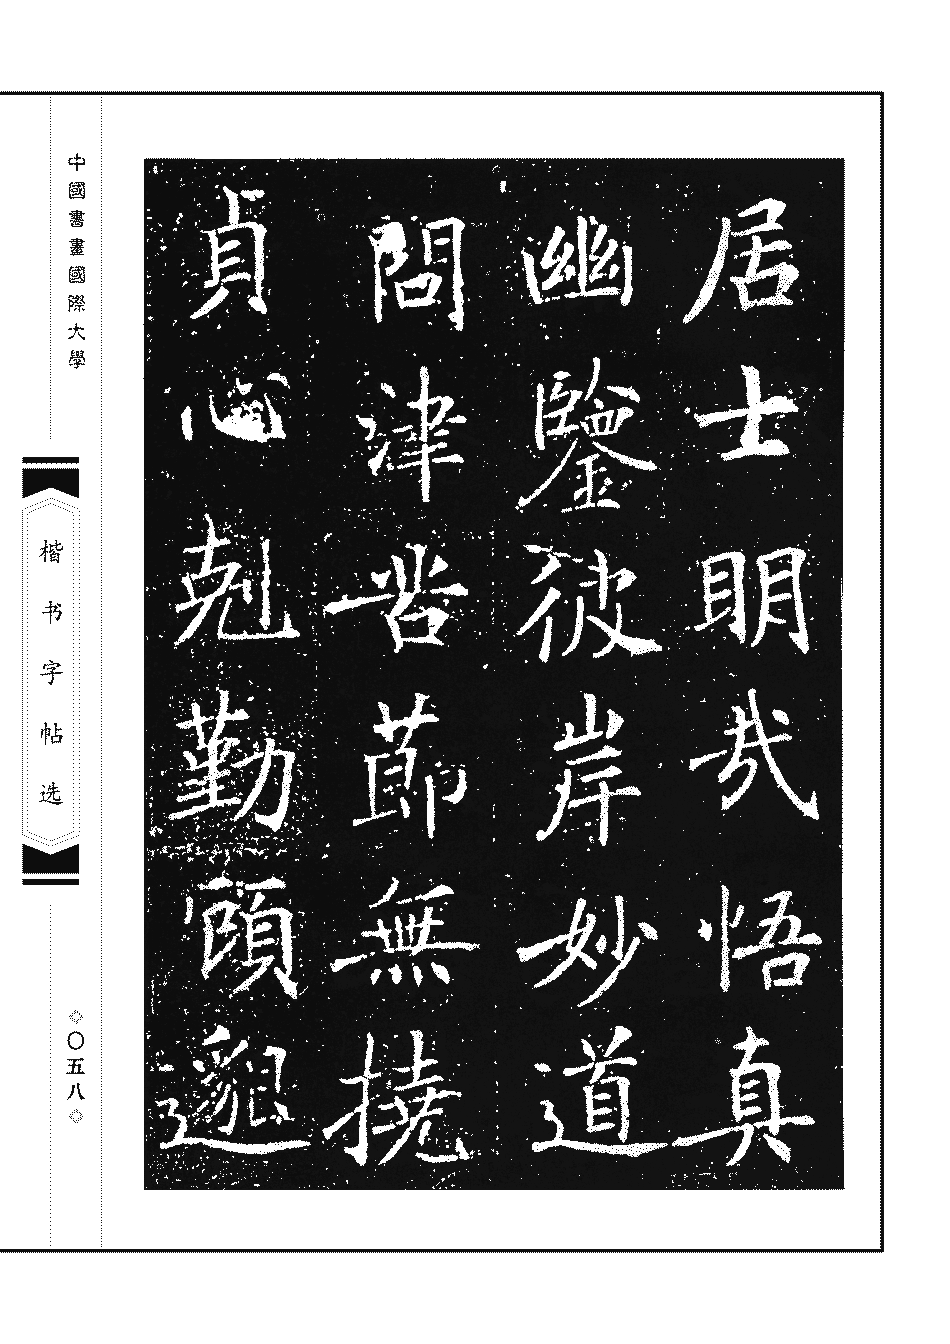 居士明哉悟真
幽鑒彼岸妙道
問津苦節無撓
貞心剋勤顧邈
中國書畫國際大學
楷书字帖选
◇〇五八◇